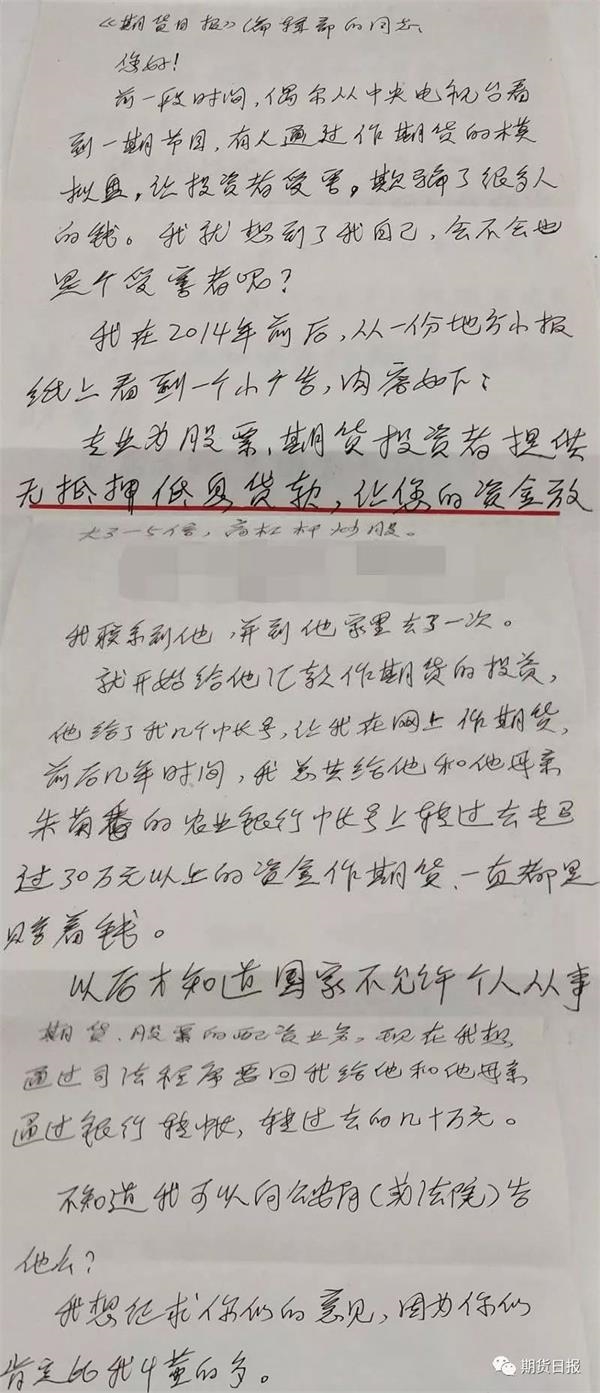 《期货日报》编辑部的同志：
您好！
前一段时间，偶尔从中央电视台看
到一期节目，有人通过作期货的模
拟盘，让投资者受害，欺骗了很多人
的钱。我就想到了我自己，会不会也
是个受害者呢？
我在2014年前后，从一份地方小报
纸上看到一个小广告，内容如下：
专业为股票、期货投资者提供
无抵押低息贷款，让您的资金放
大3—5倍，高杠杆炒股。
我联系到他，并到他家里去了一次。
就开始给他汇款作期货的投资，
他给了我几个帐号，让我在网上作期货，
前后几年时间，我总共给他和他母亲
朱菊番的农业银行帐号上转过去超
过30万元以上的资金作期货、一直都是
赔着钱。
以后才知道国家不允许个人从事
期货、股票的配资业务，现在我想
通过司法程序要回我给他和他母亲
通过银行转帐，转过去的几十万元。
不知道我可以向公安局（或法院）告
他么？
我想征求你们的意见，因为你们
肯定比我懂的多。
期货日报